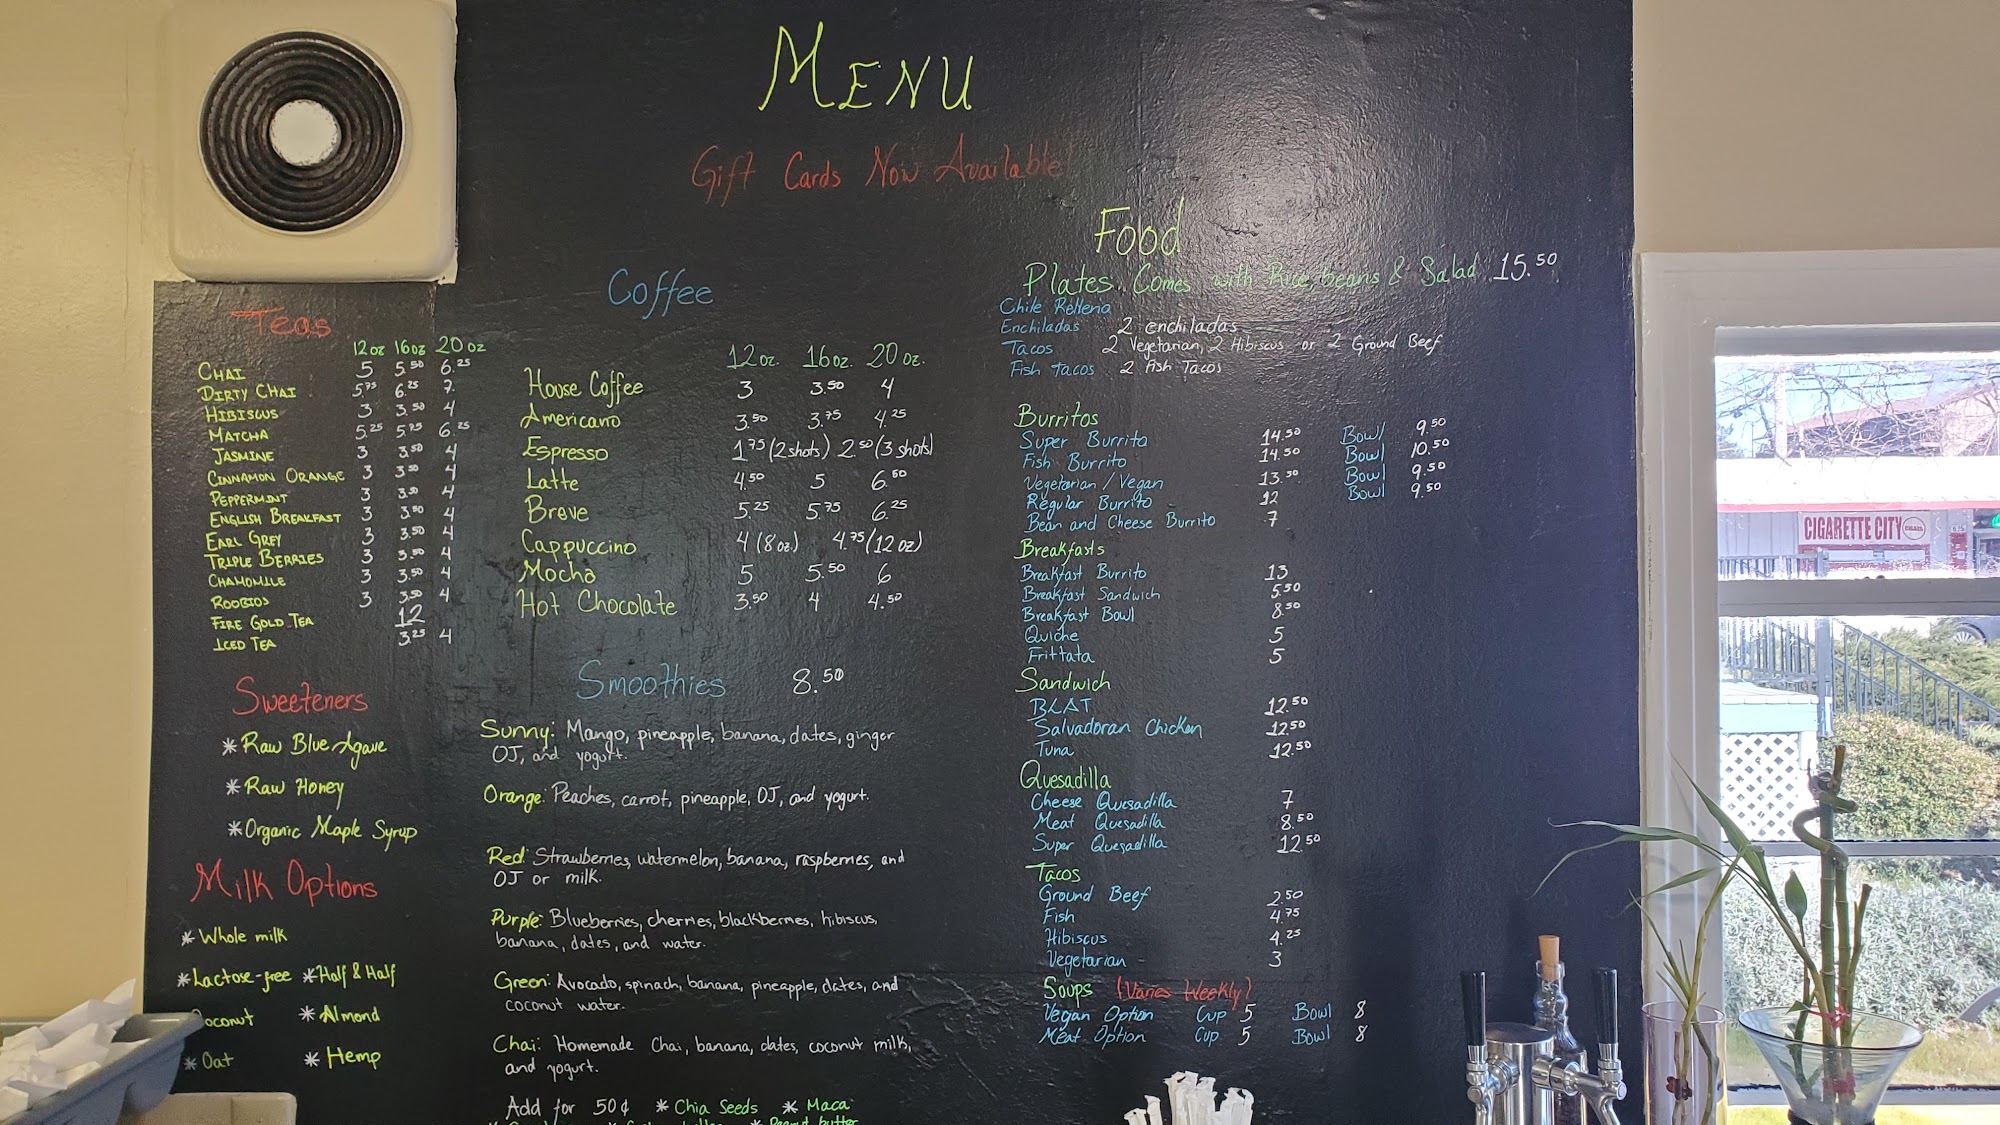 MENU
Gift Cards Now Available!
Teas
12 oz 16 oz 20 oz
CHAI 5 5.50 6.25
DIRTY CHAI 5.75 6.25 7
HIBISCUS 3 3.50 4
MATCHA 5.25 5.75 6.25
JASMINE 3 3.50 4
CINNAMON ORANGE 3 3.50 4
PEPPERMINT 3 3.50 4
ENGLISH BREAKFAST 3 3.50 4
EARL GREY 3 3.50 4
TRIPLE BERRIES 3 3.50 4
CHAMOMILE 3 3.50 4
ROOBIOS 3 3.50 4
FIRE GOLD TEA 12
ICED TEA 3.25 4
Sweeteners
* Raw Blue Agave
* Raw Honey
* Organic Maple Syrup
Milk Options
* Whole milk
* Lactose-free * Half & Half
Coconut * Almond
* Oat * Hemp
Coffee
12 oz. 16 oz. 20 oz.
House Coffee 3 3.50 4
Americano 3.50 3.75 4.25
Espresso 1.75 (2 shots) 2.50 (3 shots)
Latte 4.50 5 6.50
Breve 5.25 5.75 6.25
Cappuccino 4 (8 oz.) 4.75 (12 oz)
Mocha 5 5.50 6
Hot Chocolate 3.50 4 4.50
Smoothies 8.50
Sunny: Mango, pineapple, banana, dates, ginger
OJ, and yogurt.
Orange: Peaches, carrot, pineapple, OJ, and yogurt.
Red: Strawberries, watermelon, banana, raspberries, and
OJ or milk.
Purple: Blueberries, cherries, blackberries, hibiscus,
banana, dates, and water.
Green: Avocado, spinach, banana, pineapple, dates, and
coconut water.
Chai: Homemade Chai, banana, dates, coconut milk,
and yogurt.
Add for 50¢ * Chia Seeds * Maca
* Peanut butter
Food
Plates Comes with Rice, beans & Salad 15.50
Chile Relleno
Enchiladas 2 enchiladas
Tacos 2 Vegetarian, 2 Hibiscus or 2 Ground Beef
Fish tacos 2 Fish Tacos
Burritos
Super Burrito 14.50 Bowl 9.50
Fish Burrito 14.50 Bowl 10.50
Vegetarian / Vegan 13.50 Bowl 9.50
Regular Burrito 12 Bowl 9.50
Bean and Cheese Burrito 7
Breakfasts
Breakfast Burrito 13
Breakfast Sandwich 5.50
Breakfast Bowl 8.50
Quiche 5
Frittata 5
Sandwich
BLAT 12.50
Salvadoran Chicken 12.50
Tuna 12.50
Quesadilla
Cheese Quesadilla 7
Meat Quesadilla 8.50
Super Quesadilla 12.50
Tacos
Ground Beef 2.50
Fish 4.75
Hibiscus 4.25
Vegetarian 3
Soups (Varies Weekly)
Vegan Option Cup 5 Bowl 8
Meat Option Cup 5 Bowl 8
CIGARETTE CITY